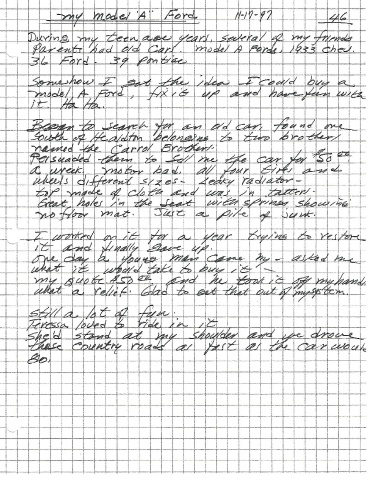 my model "A" Ford 11-17-97 46
During my teenage years, several of my friends
Parents had old Cars. model A Fords, 1933 Chev.
36 Ford. 39 Pontiac
Somehow I got the idea I could buy a
model A Ford, fix it up and have fun with
it. Ha Ha.
Began to search for an old car, found one
South of Healdton belonging to two brothers
named the Carrol Brothers.
Persuaded them to sell me the car for $50.00
a wreck. motor bad. all four tires and
wheels different sizes - Leaky radiator -
top made of cloth and was in tatters.
Great holes in the seat with springs showing
no floor mat. Just a pile of junk.
I worked on it for a year trying to restore
it and finally gave up.
One day a young man came by - asked me
what it would take to buy it -
my quote $50.00 and he took it off my hands
what a relief. Glad to get that out of my system.
Still a lot of fun.
Teressa loved to ride in it
She'd stand at my shoulder and we drove
these country roads as fast as the car would
go.